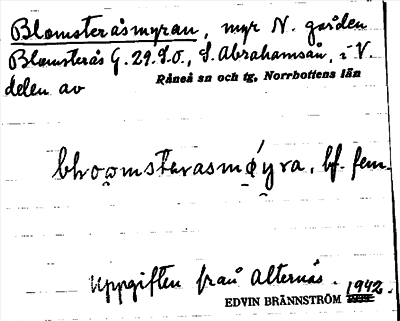 Blomsteråsmyran, myr N. gården
Blomsterås G. 29. S.O., S. Abrahamsån, i V.
Råneå sn och tg, Norrbottens län
delen av
uppgiften från Alternäs. 1942.
EDVIN BRÄNNSTRÖM